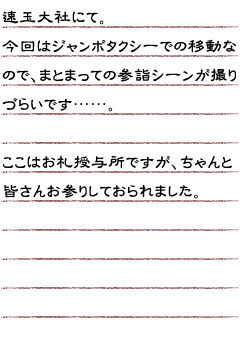 速玉大社にて。
今回はジャンボタクシーでの移動な
ので、まとまっての参詣シーンが撮り
づらいです……。
ここはお札授与所ですが、ちゃんと
皆さんお参りしておられました。